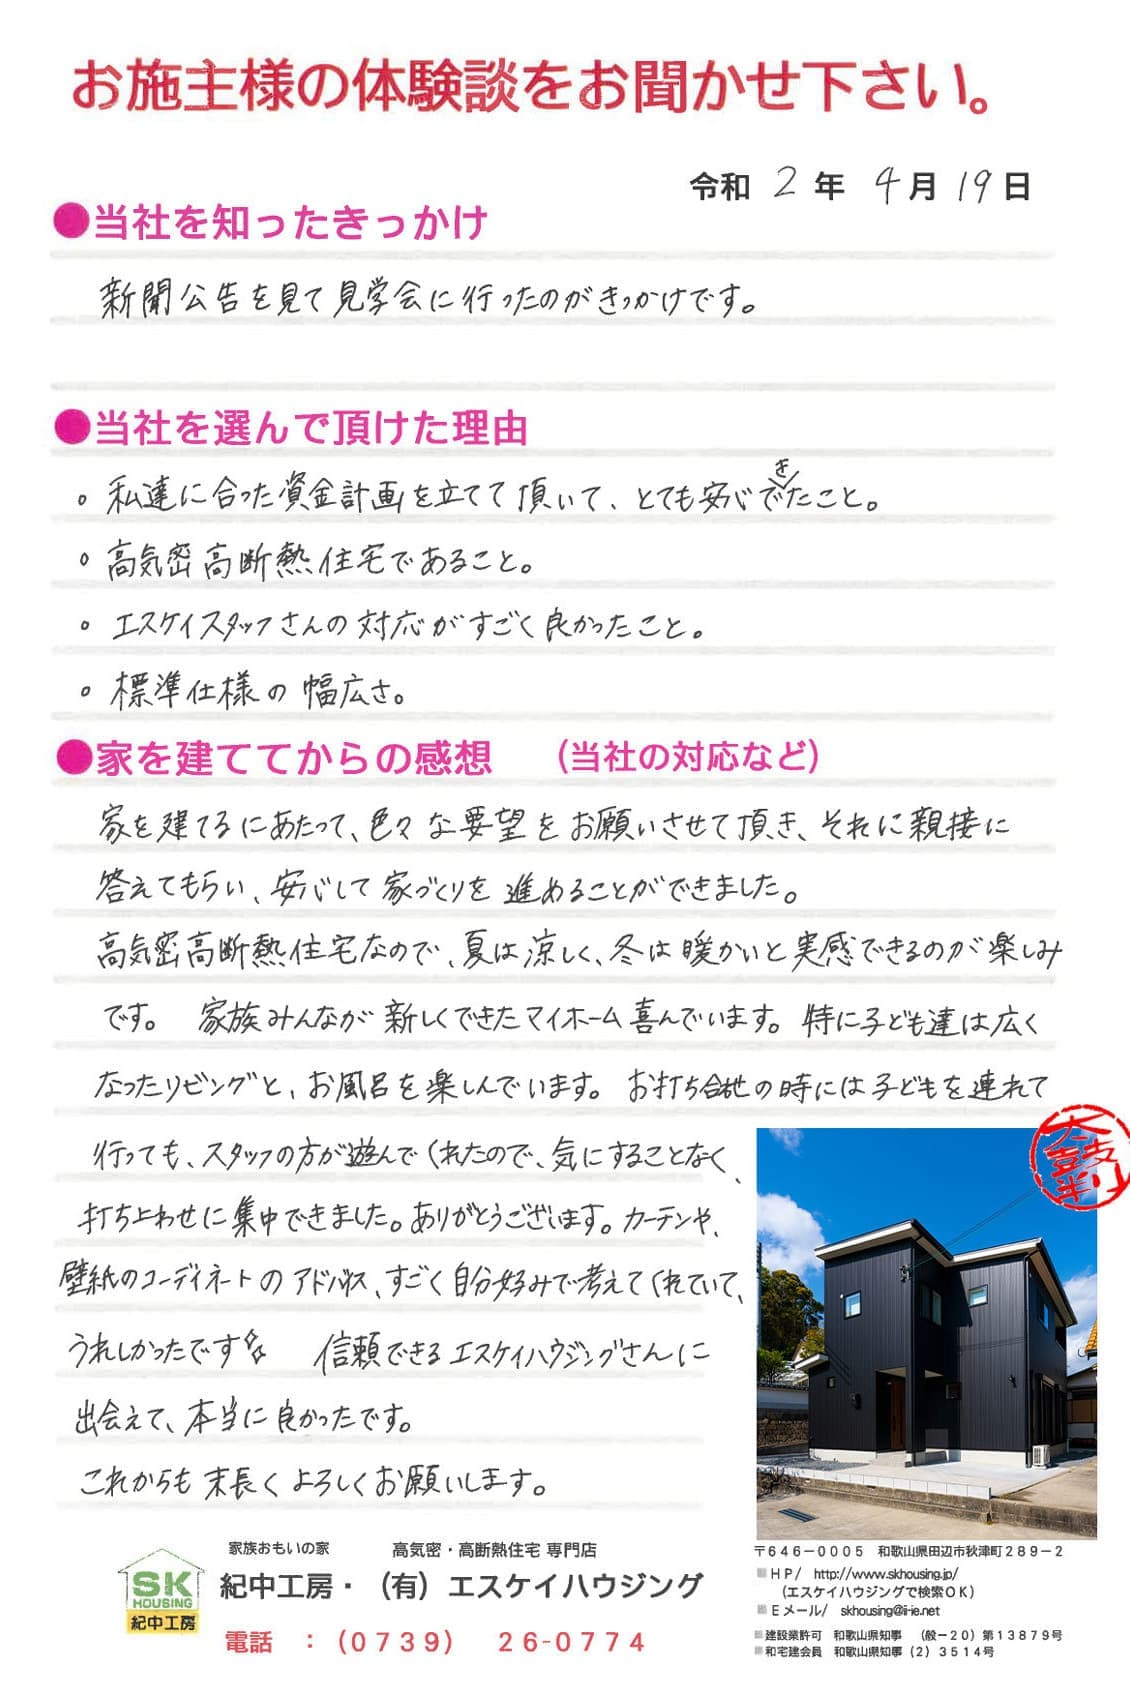 お施主様の体験談をお聞かせ下さい。
令和 2 年 4 月 19 日
●当社を知ったきっかけ
新聞公告を見て見学会に行ったのがきっかけです。
●当社を選んで頂けた理由
。私達に合った資金計画を立てて頂いて、とても安心できたこと。
。高気密高断熱住宅であること。
。エスケイスタッフさんの対応がすごく良かったこと。
。標準仕様の幅広さ。
●家を建ててからの感想 (当社の対応など)
家を建てるにあたって、色々な要望をお願いさせて頂き、それに親接に
答えてもらい、安心して家づくりを進めることができました。
高気密高断熱住宅なので、夏は涼しく、冬は暖かいと実感できるのが楽しみ
です。 家族みんなが新しくできたマイホーム喜んでいます。特に子ども達は広く
なったリビングと、お風呂を楽しんでいます。お打ち合せの時には子どもを連れて
行っても、スタッフの方が遊んでくれたので、気にすることなく、
打ち上わせに集中できました。ありがとうございます。カーテンや、
壁紙のコーディネートのアドバイス、すごく自分好みで考えてくれていて、
うれしかったです 信頼できるエスケイハウジングさんに
出会えて、本当に良かったです。
これからも末長くよろしくお願いします。
太鼓判
家族おもいの家 高気密・高断熱住宅 専門店
SK HOUSING 紀中工房
紀中工房・(有)エスケイハウジング
電話 :(0739) 26-0774
〒646-0005 和歌山県田辺市秋津町289-2
HP/ http://www.skhousing.jp/
(エスケイハウジングで検索OK)
Eメール/ skhousing@ii-ie.net
建設業許可 和歌山県知事 (般-20)第13879号
和宅建会員 和歌山県知事(2)3514号